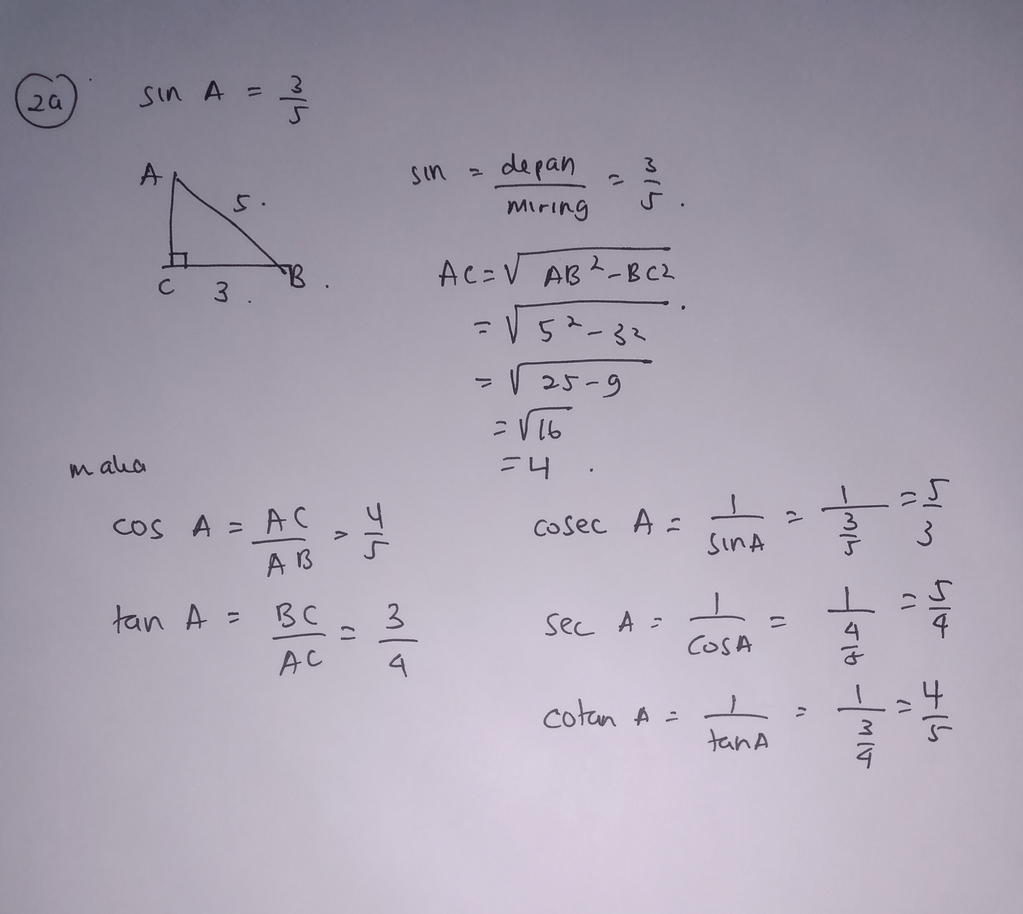 2a sin A = 3/5
A
5.
C 3. B.
sin = depan/miring = 3/5.
AC = √AB²-BC2
= √5²-32
= √25-9
= √16
= 4.
maka
cos A = AC/AB = 4/5
tan A = BC/AC = 3/4
cosec A = 1/sinA = 1/(3/5) = 5/3
sec A = 1/cosA = 1/(4/5) = 5/4
cotan A = 1/tanA = 1/(3/4) = 4/5